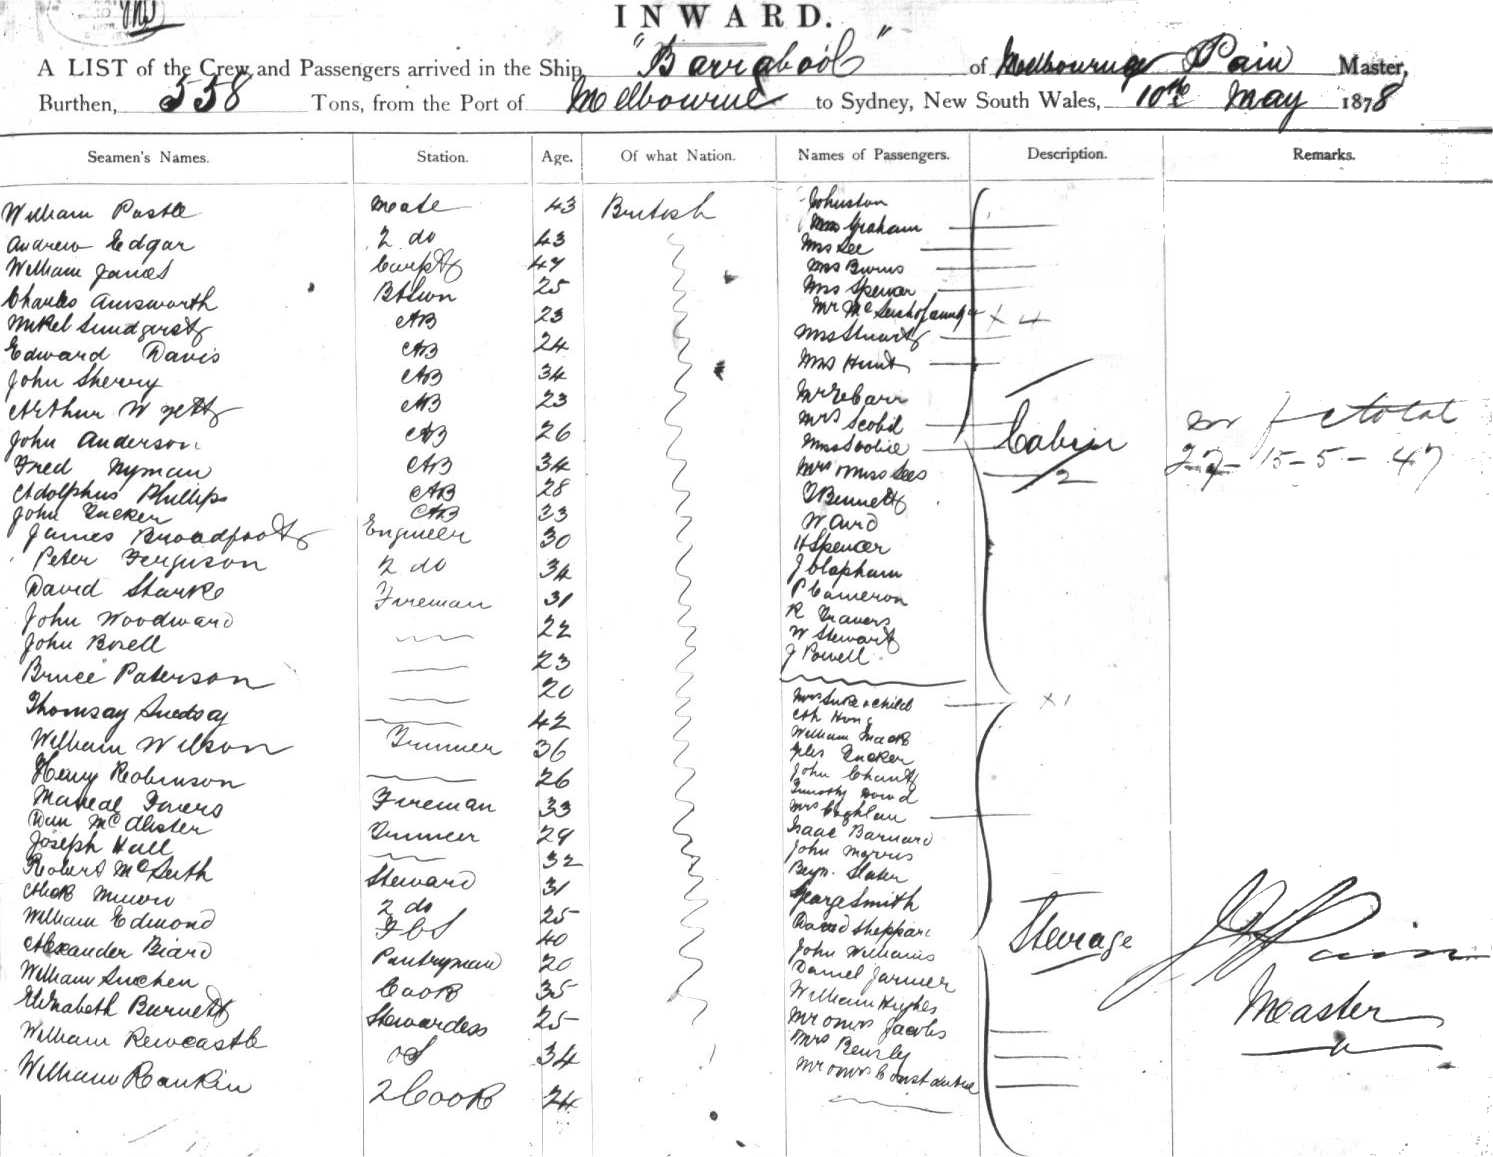 INWARD.
A LIST of the Crew and Passengers arrived in the Ship "Barrabool" of Melbourne Pain Master,
Burthen, 558 Tons, from the Port of Melbourne to Sydney, New South Wales, 10th May 1878
Seamen's Names. Station. Age. Of what Nation. Names of Passengers. Description. Remarks.
William Postle Mate 43 British Johnston
Andrew Edgar 2 do 43 Mrs Graham
William James 47 Mrs See
Charles Ainsworth 25 Mrs Burns
Mikel 23 Mrs Spencer
Edward Davis AB 24 Mr Mc family X 4
John Sherry AB 34 Mrs Stuart
Arthur Wyett AB 23 Mrs Hunt
John Anderson AB 26 Mr E Carr
Fred Nyman AB 34 Mrs Scobie
Adolphus Phillips AB 28 Miss Scobie
John Tucker AB 33 Mrs & Miss Sees
James Broadfoot Engineer 30 Bennett
Peter Ferguson 2 do 34 Ward
David Starke Fireman 31 H Spencer
John Woodward 22 J Clapham
John Bosell 23 P Cameron
Bruce Paterson 20 R Travers
42 W Stewart
William Wilson Trimmer 36 J Powell
Cabin
12
m f c total
27 - 15 - 5 - 47
Henry Robinson 26 Mrs & child X 1
Fireman 33 Ah Hong
Dan McAlister Trimmer 29 William Mack
Joseph Hall 32 Giles Tucker
Robert Steward 31 John Chant
2 do 25 Timothy Dowd
William Edmond 40 Mrs Coghlan
Alexander Biard Pantryman 20 Isaac Barnard
William Cook 35 John Morris
Elizabeth Burnett Stewardess 25 Benj. Slater
William Newcastle OS 34 George Smith
William Rankin 2 Cook 24 David Sheppard
John Williams
Daniel Jarmer
William Hughes
Mr & Mrs Jacobs
Mrs
Mr & Mrs Constantine
Steerage
Pain
Master